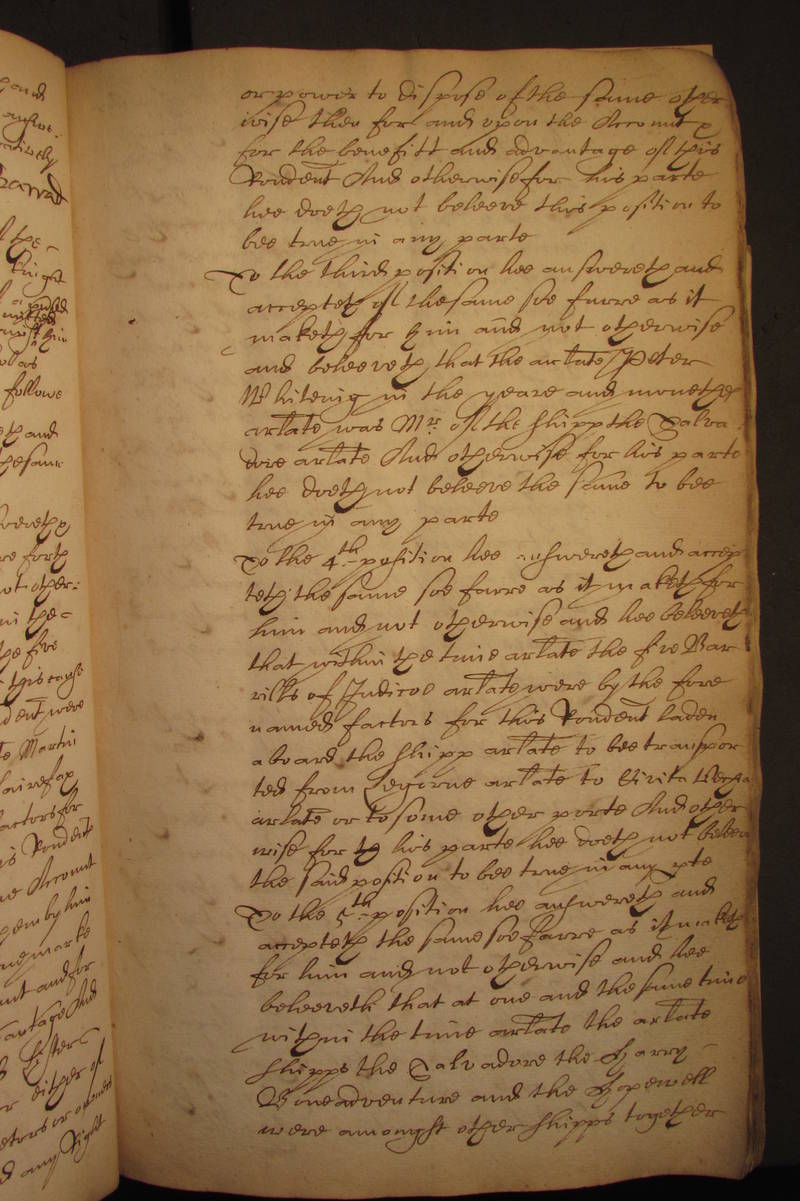 or power to dispose of the same other
wise then for and upon the Account
for the benefitt and advantage of this
Rondent And otherwise for his parte
hee doeth not beleeve this position to
bee true in any parte
To the third position hee answereth and
accepteth of the same soe farre as it
maketh for him and not otherwise
and beleeveth that the arlate Peter
Whiteing in the yeare and moneth
arlate was Mr. of the shipp the Salva
dore arlate And otherwise for his parte
hee doeth not beleeve the same to bee
true in any parte
To the 4th position hee answereth and accep
teth the same soe farre as it maketh for
him and not otherwise and hee beleeveth
that within the time arlate the five Bar
rills of Indicoe arlate were by the fore
named factors for this Rondent laden
aboard the shipp arlate to bee transpor
ted from Legorne arlate to Civita Vecha
arlate or to some other porte And other
wise for his parte hee doeth not beleeve
the said position to bee true in any pte
To the 5th position hee answereth and
accepteth the same soe farre as it maketh
for him and not otherwise and hee
beleeveth that at one and the same time
within the time arlate the arlate
shipps the Salvadore the Harry
Boneadventure and the Hopewell
were amongst other shipps together